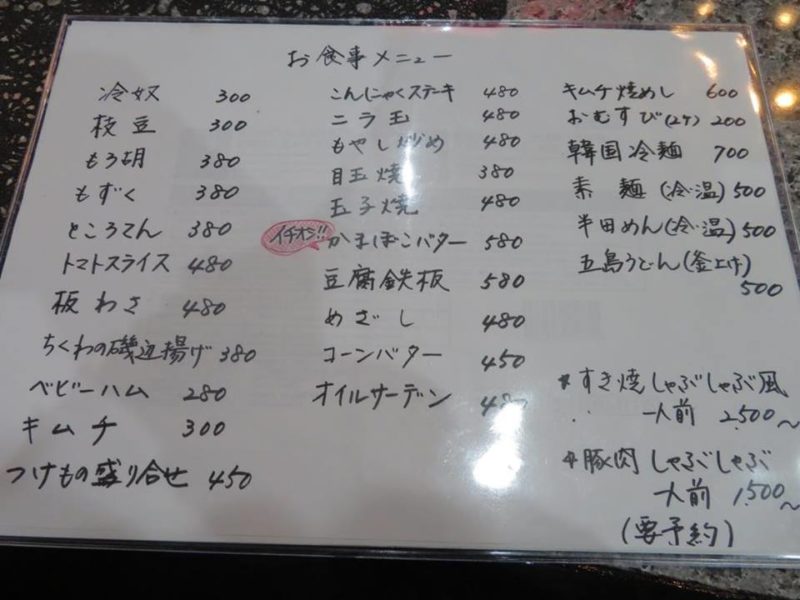 お食事メニュー
冷奴 300
枝豆 300
もろ胡 380
もずく 380
ところてん 380
トマトスライス 480
板わさ 480
ちくわの磯辺揚げ 380
ベビーハム 280
キムチ 300
つけもの盛り合せ 450
こんにゃくステーキ 480
ニラ玉 480
もやし炒め 480
目玉焼 380
玉子焼 480
イチオシ!!
かまぼこバター 580
豆腐鉄板 580
めざし 480
コーンバター 450
オイルサーデン 480
キムチ焼めし 600
おむすび(2ケ) 200
韓国冷麺 700
素麺(冷・温) 500
半田めん(冷・温) 500
五島うどん(釜上げ)
500
* すき焼しゃぶしゃぶ風
一人前 2,500〜
* 豚肉しゃぶしゃぶ
一人前 1,500〜
(要予約)